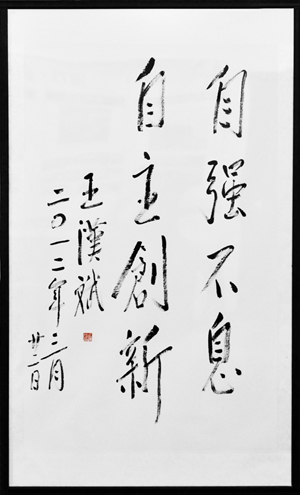 自强不息
自主創新
王漢斌
二〇一二年三月
廿二日